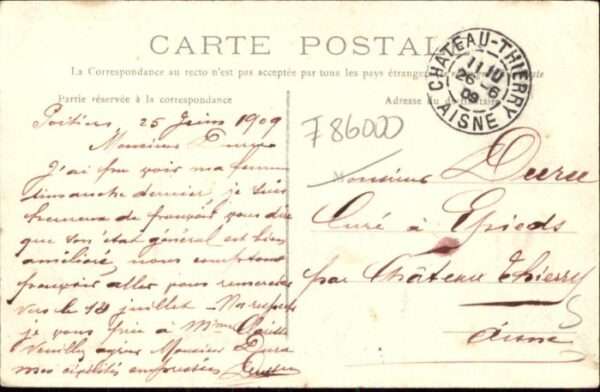 CARTE POSTALE
La Correspondance au recto n'est pas acceptée par tous les pays étrangers
Partie réservée à la correspondance
Adresse du destinataire
CHATEAU-THIERRY
11 10
26 - 6
09
AISNE
F86000
Poitiers 25 Juin 1909
Monsieur Duru
J'ai pu voir ma femme
dimanche dernier, je suis
heureux de pouvoir vous dire
que son état général est bien
amélioré, nous comptons
pouvoir aller vous remercier
vers le 18 juillet
je vous prie à Mme
Veuillez agréer Monsieur Duru
mes civilités empressées
Monsieur Duru
Curé à Epieds
par Château Thierry
Aisne